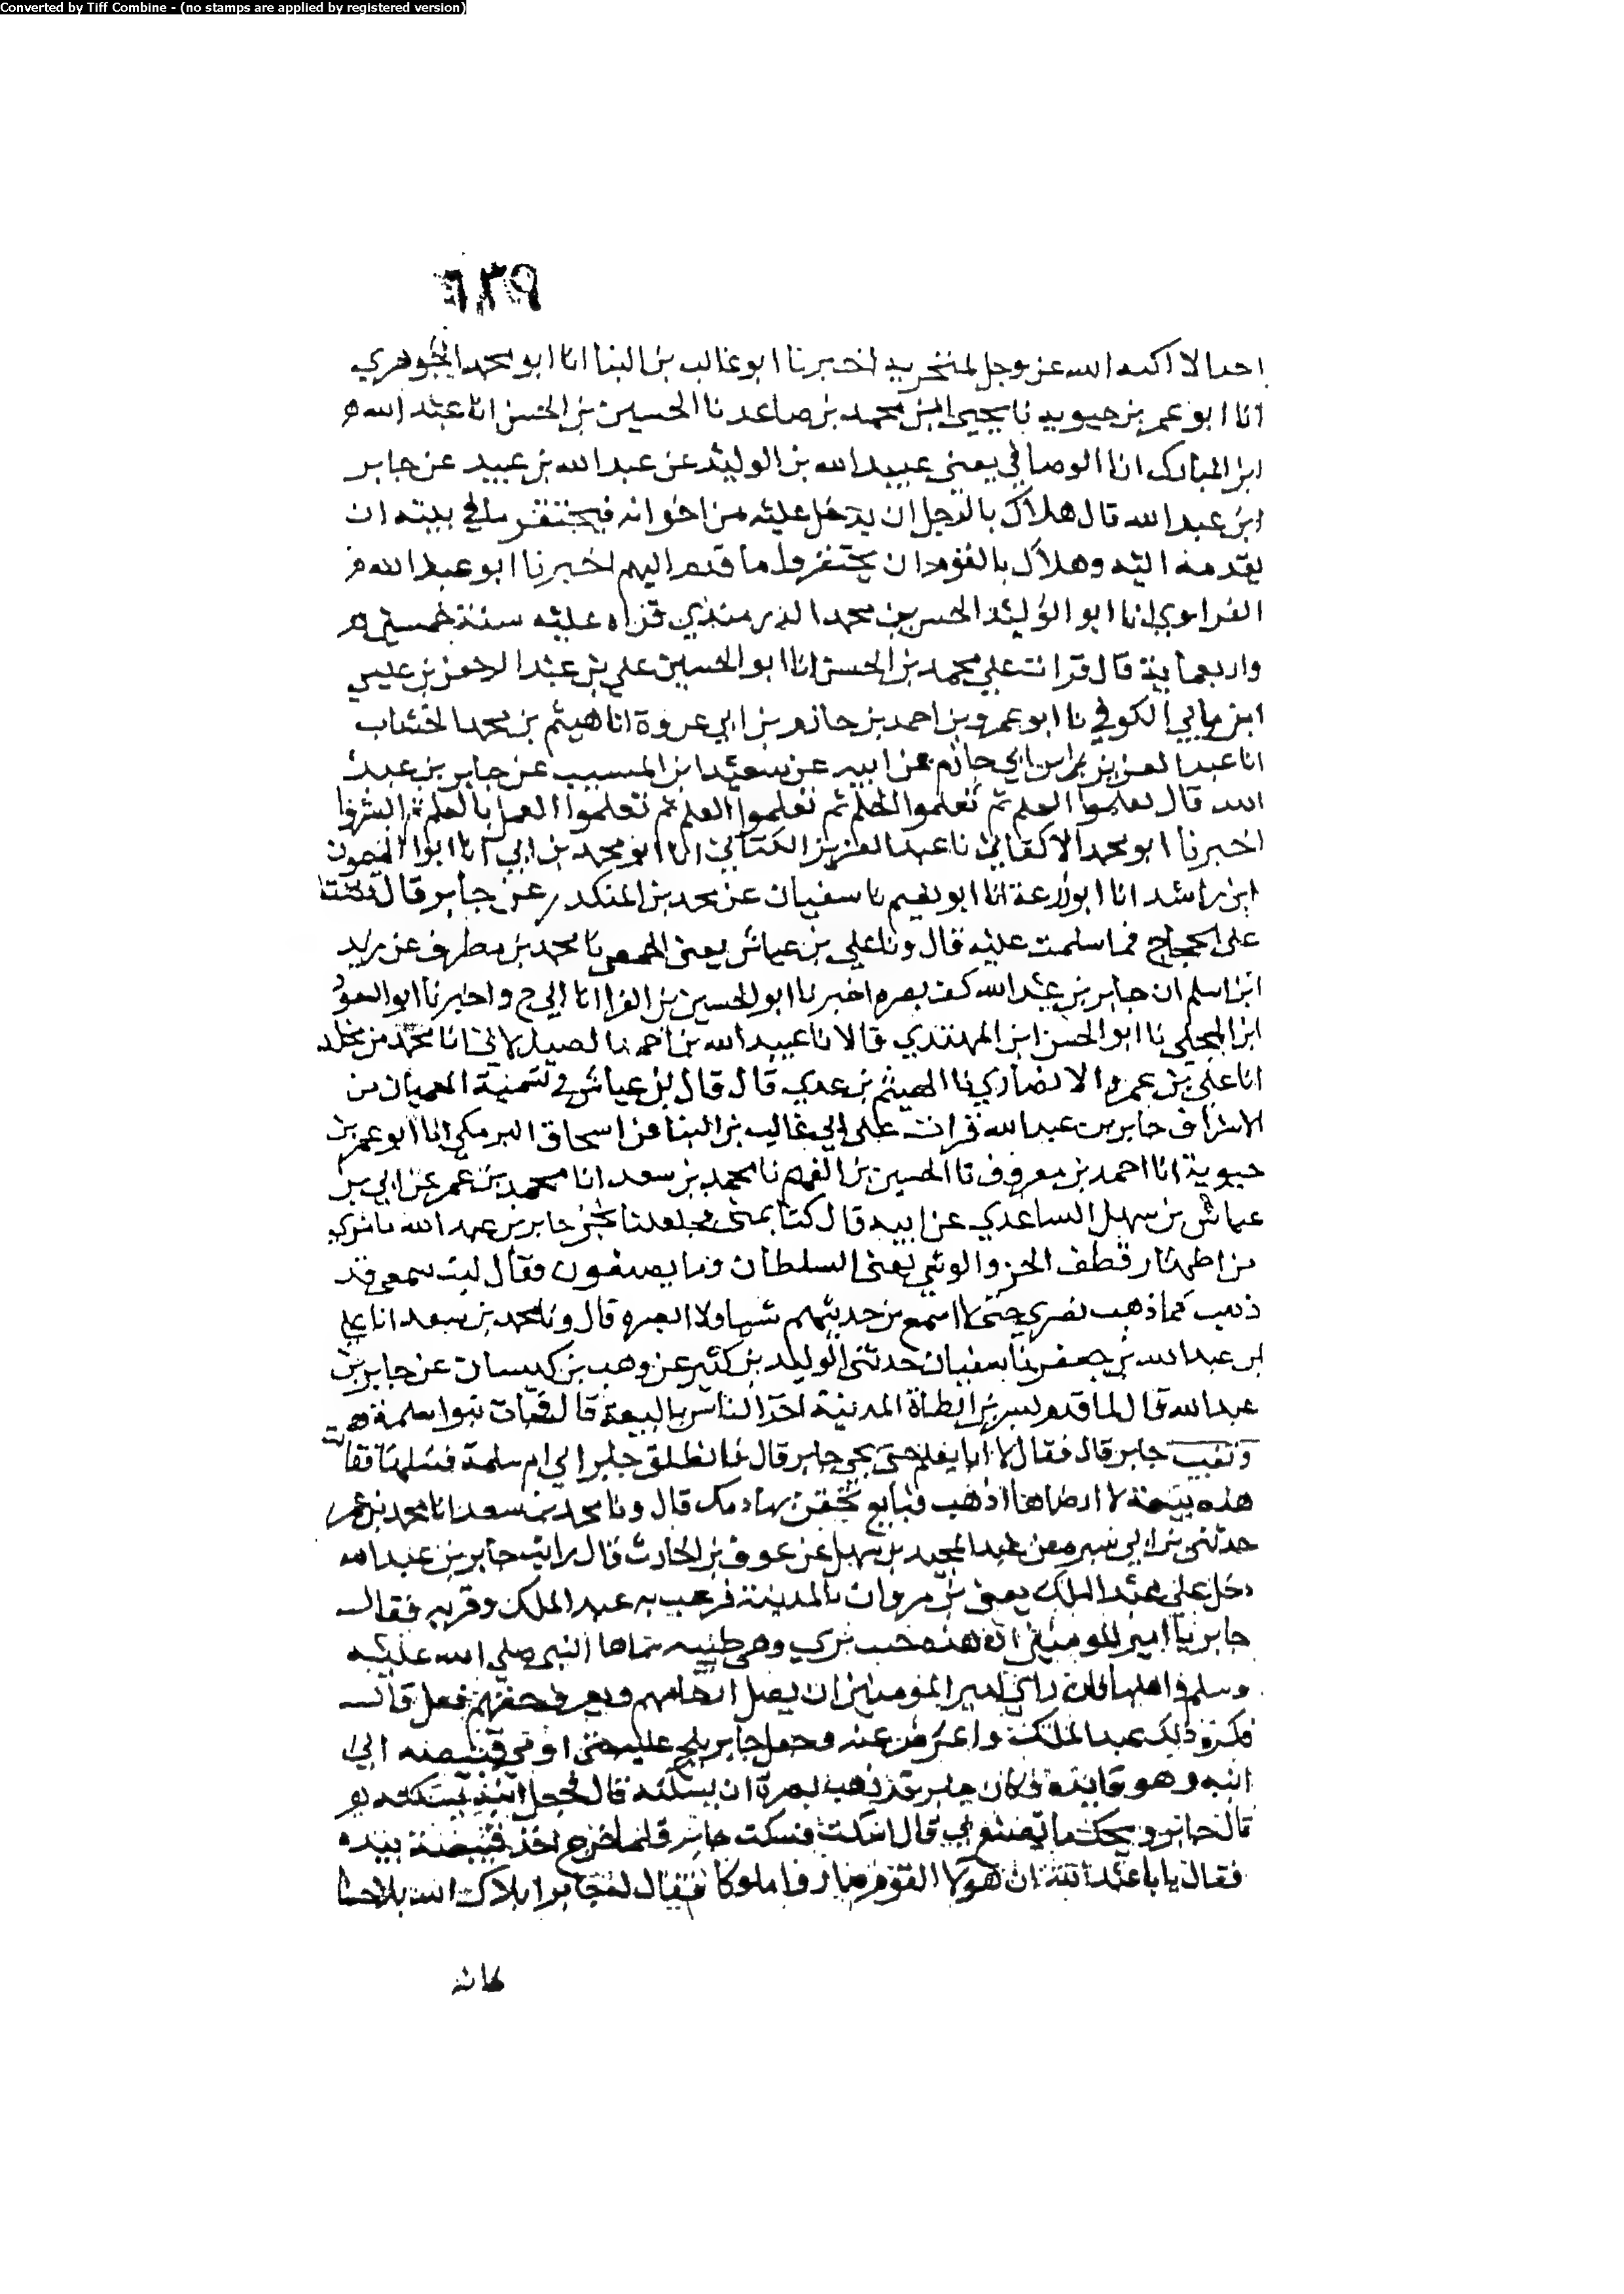 Converted by Tiff Combine - (no stamps are applied by registered version)
٦٣٩
احدا لا اكبه الله عز وجل لمنخريه اخبرنا ابو غالب بن البنا انا ابو محمد الجوهري
انا ابو عمر بن حيويه نا يحيى ابن محمد بن صاعد نا الحسين بن الحسن انا عبد الله
ابن المبارك انا الوصافي يعني عبيد الله بن الوليد عن عبد الله بن عبيد عن جابر
ابن عبد الله قال هلاك بالرجل ان يدخل عليه من اخوانه فيحتقر ما في بيته ان
يقدمه اليه وهلاك بالقوم ان يحتقروا ما قدم اليهم اخبرنا ابو عبد الله
الفراوي انا ابو الوليد الحسن بن محمد الدرمنذي قراه عليه سنة خمسين
واربعماية قال قرات علي محمد بن الحسن انا ابو الحسين علي بن عبد الرحمن بن عيسي
ابن ماتي الكوفي نا ابو عمرو بن احمد بن حازم بن ابي عروة انا هيثم بن محمد الخشاب
انا عبد العزيز بن ابي حازم عن ابيه عن سعيد ابن المسيب عن جابر بن عبد
الله قال تعلموا العلم ثم تعلموا الحلم ثم تعلموا العلم ثم تعلموا العمل بالعلم ثم ابشروا
اخبرنا ابو محمد الاكفاني نا عبد العزيز الكتاني انا ابو محمد بن ابي انا ابو الميمون
ابن راشد انا ابو زرعة انا ابو نعيم نا سفيان عن محمد بن المنكدر عن جابر قال دخلنا
على الحجاج فما سلمت عليه قال ونا علي بن عياش يعني الحمصي نا محمد بن مطرف عن زيد
ابن اسلم ان جابر بن عبد الله كف بصره اخبرنا ابو الحسين بن الفرا انا ابي ح واخبرنا ابو السعود
ابن المجلي نا ابو الحسن ابن المهتدي قالا نا عبيد الله بن احمد الصيدلاني انا محمد بن مخلد
انا علي بن عمرو الانصاري نا الهيثم بن عدي قال قال ابن عياش في تسمية العميان من
الاشراف جابر بن عبد الله قرات على ابي غالب بن البنا عن اسحاق البرمكي انا ابو عمر بن
حيوية انا احمد بن معروف نا الحسين بن الفهم نا محمد بن سعد انا محمد بن عمر عن ابي بن
عباس بن سهل الساعدي عن ابيه قال كنا بمنى فجعلنا نخبر جابر بن عبد الله ما نرى
من اظهار قطف الخز والوشي يعني السلطان وما يصنعون فقال ليت سمعي قد
ذهب كما ذهب بصري حتى لا اسمع من حديثهم شيا ولا ابصره قال ونا محمد بن سعد انا علي
بن عبد الله بن جعفر نا سفيان حدثني الوليد بن كثير عن وهب بن كيسان عن جابر بن
عبد الله قال لما قدم بسر بن ارطاة المدنية اخذ الناس بالبيعة قال فجات بنو اسلمة
وتغيب جابر قال فقال لا ابايعكم حتى يجي جابر قال فانطلق جابر الي ام سلمة فسلها فقالت
هذه بيعة لا ارضاها اذهب فبايع تحقن بها دمك قال ونا محمد بن سعد انا محمد بن عمر
حدثني بن ابي سبره عن عبد المجيد بن سهل عن عوف بن الحارث قال رايت جابر بن عبد الله
دخل على عبد الملك يعني بن مروان بالمدينة فرحب به عبد الملك وقربه فقال
جابر يا امير المومنين ان هذه حيث ترى وهي طيبه سماها النبي صلي الله عليه
وسلم واهلها فان راي امير المؤمنين ان يصل ارحامهم ويعرف حقهم فعل قال
فكره ذلك عبد الملك واعرض عنه وجعل جابر يلح عليه حتى اومى قبيصه الي
ابنه وهو قايده وكان جابر قد ذهب بصره ان يسكته قال فجعل ابنه يسكته
قال جابر ويحك ما تصنع بي قال اسكت فسكت جابر فلما خرج اخذ قبيصة بيده
فقال يا با عبد الله ان هولا القوم صاروا ملوكا فقال له جابر ابلاك الله بلا حسنا